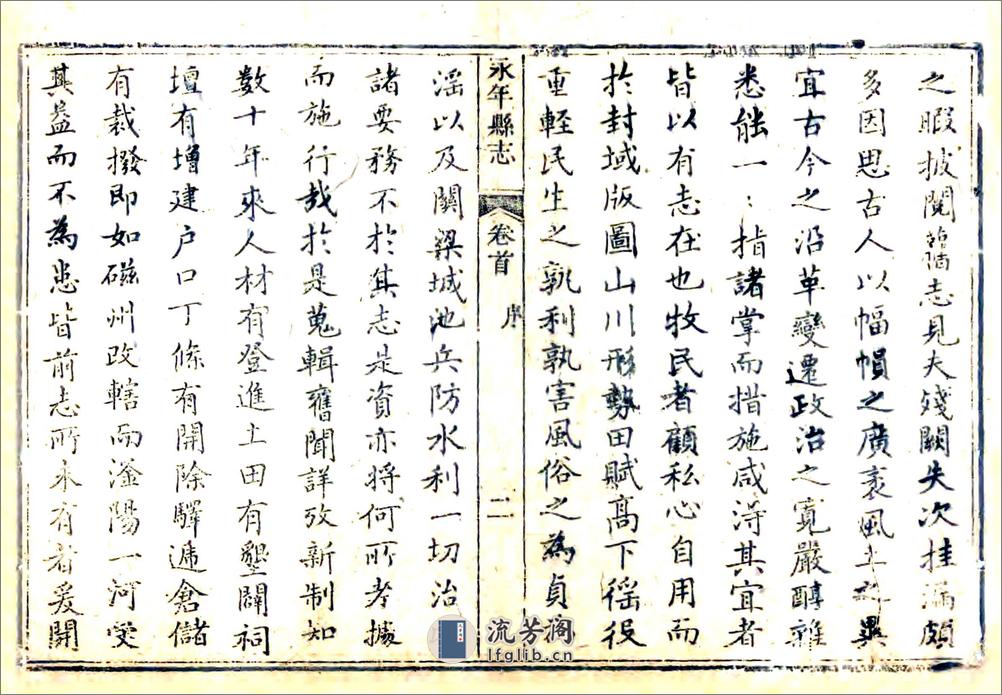 之暇披閱舊志見夫殘闕失次挂漏頗
多因思古人以幅幀之廣袤風土之異
宜古今之沿革變遷政治之寬嚴醇雜
悉能一〻指諸掌而措施咸得其宜者
皆以有志在也牧民者顧私心自用而
於封域版圖山川形勢田賦高下徭役
重輕民生之孰利孰害風俗之為貞
永年縣志 卷首 序 二
淫以及關梁城池兵防水利一切治
諸要務不於其志是資亦將何所考據
而施行哉於是蒐輯舊聞詳攷新制如
數十年來人材有登進土田有墾闢祠
壇有增建戶口丁條有開除驛遞倉儲
有裁撥即如磁州改轄而滏陽一河受
其益而不為患皆前志所未有者爰開
流芳阁
lfglib.cn